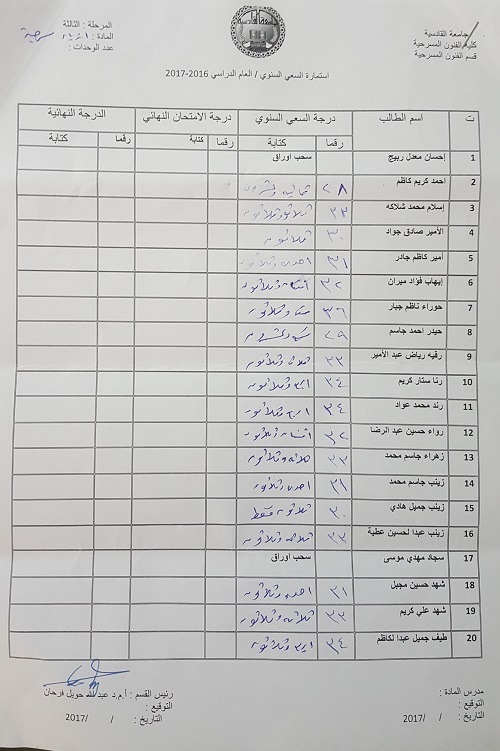 جامعة القادسية
كلية الفنون المسرحية
قسم الفنون المسرحية
المرحلة : الثالثة
المادة :
عدد الوحدات :
استمارة السعي السنوي / العام الدراسي 2016-2017
ت اسم الطالب درجة السعي السنوي درجة الامتحان النهائي الدرجة النهائية
رقما كتابة رقما كتابة رقما كتابة
1 إحسان معدل ربيج سحب اوراق
2 احمد كريم كاظم ٢٨ ثمانية وعشرون
3 إسلام محمد شلاكه ٣٣ ثلاثة وثلاثون
4 الأمير صادق جواد ٣٠ ثلاثون
5 امير كاظم جادر ٣١ احدى وثلاثون
6 إيهاب فؤاد ميران ٣٢ اثنان وثلاثون
7 حوراء ناظم جبار ٣٦ ستة وثلاثون
8 حيدر احمد جاسم ٢٩ تسعة وعشرون
9 رقيه رياض عبد الأمير ٣٣ ثلاثة وثلاثون
10 رنا ستار كريم ٣٤ اربع وثلاثون
11 رند محمد عواد ٣٤ اربع وثلاثون
12 رواء حسين عبد الرضا ٣٢ اثنان وثلاثون
13 زهراء جاسم محمد ٣٣ ثلاثة وثلاثون
14 زينب جاسم محمد ٣١ احدى وثلاثون
15 زينب جميل هادي ٣٠ ثلاثون فقط
16 زينب عبدا لحسين عطية ٣٣ ثلاثة وثلاثون
17 سجاد مهدي موسى سحب اوراق
18 شهد حسين مجبل ٣١ احدى وثلاثون
19 شهد علي كريم ٣٣ ثلاثة وثلاثون
20 طيف جميل عبدا لكاظم ٣٤ اربع وثلاثون
مدرس المادة :
التوقيع :
التاريخ : / /2017
رئيس القسم : أ.م.د عبد الله حويل فرحان
التوقيع :
التاريخ : / /2017